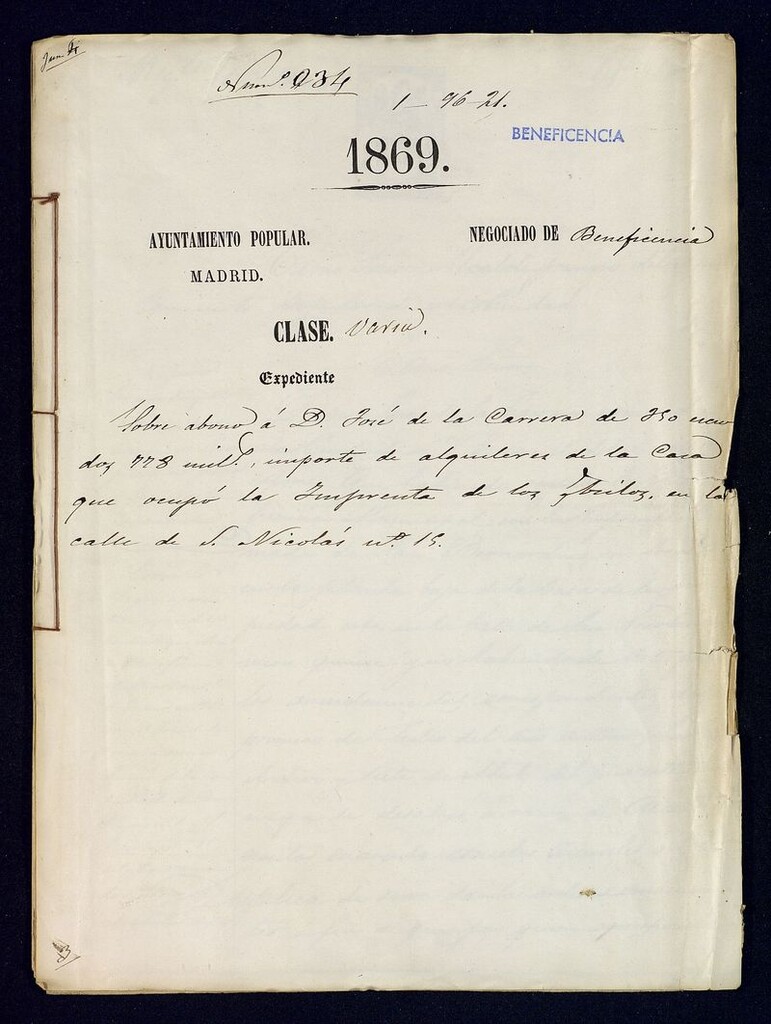 Num.º 234
1-96-21.
BENEFICENCIA
1869.
AYUNTAMIENTO POPULAR.
NEGOCIADO DE Beneficencia
MADRID.
CLASE. Varia.
Expediente
Sobre abono á D. José de la Carrera de 750 escu
dos 778 mil.s, importe de alquileres de la Casa
que ocupó la Imprenta de los Asilos, en la
calle de S. Nicolás n.º 15.